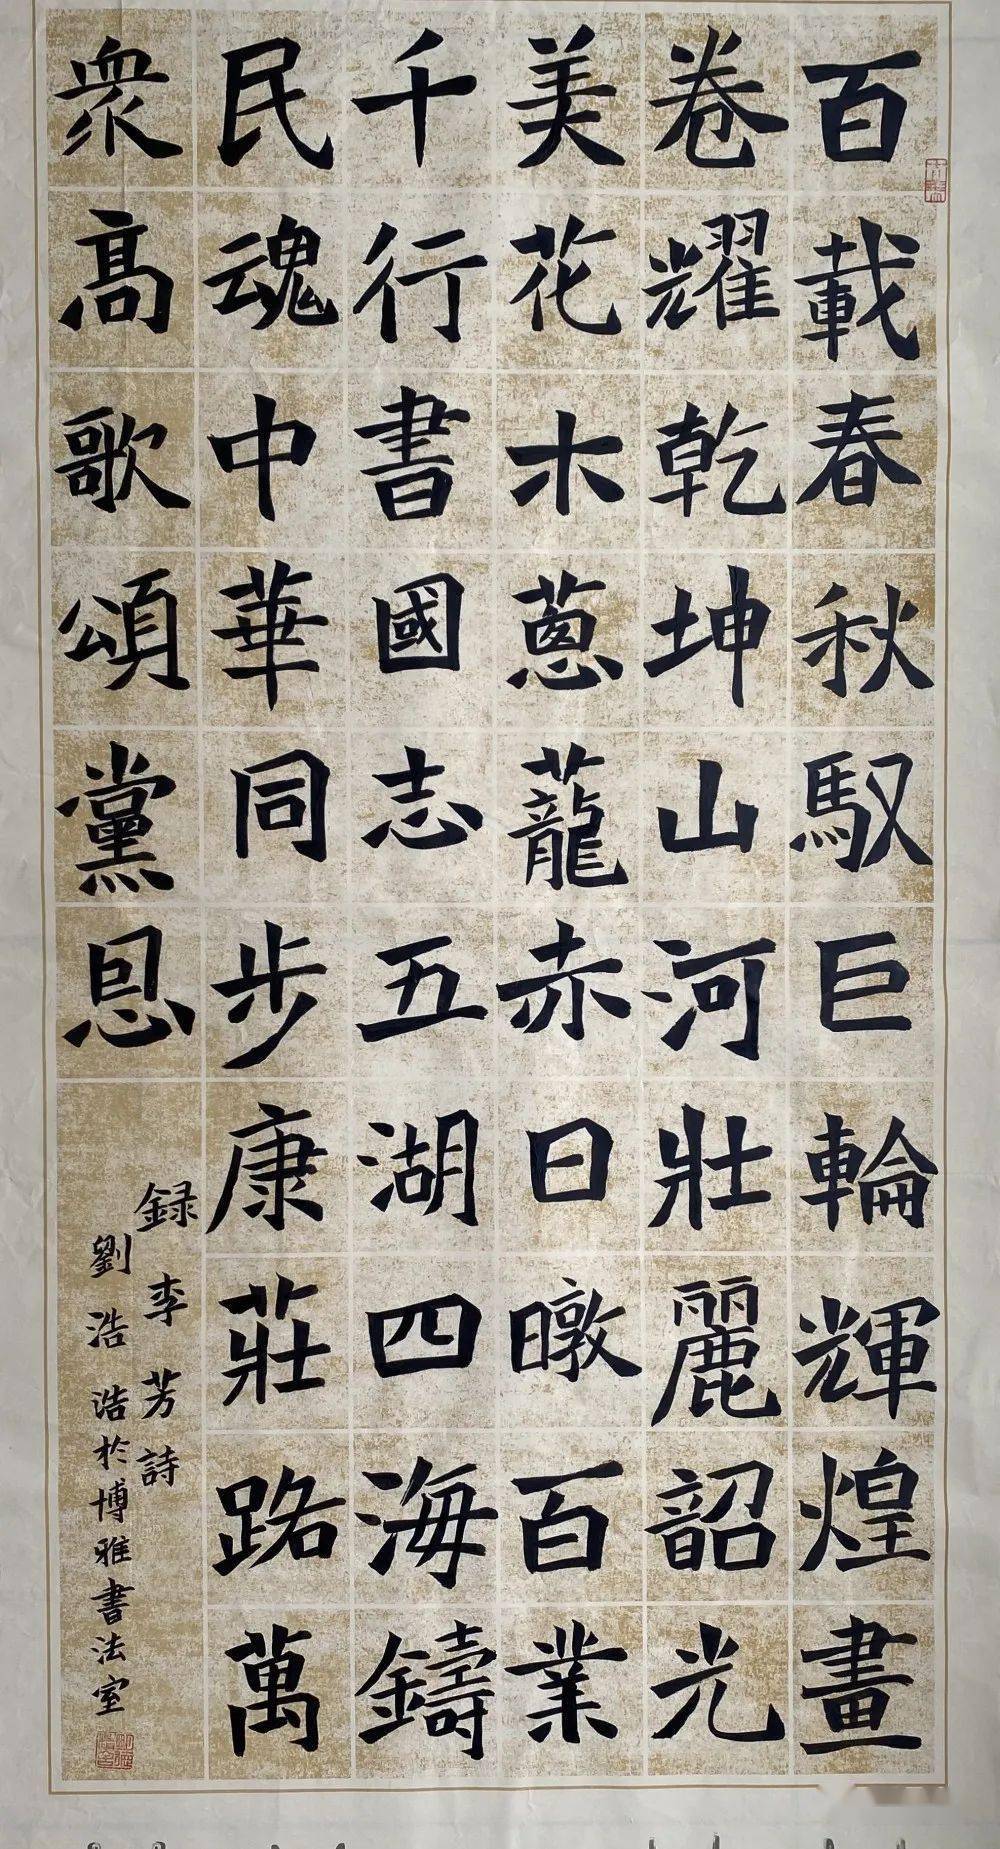 百載春秋馭巨輪輝煌畫
卷耀乾坤山河壯麗韶光
美花木蔥蘢赤日暾百業
千行書國志五湖四海鑄
民魂中華同步康莊路萬
衆高歌頌黨恩
録李芳詩
劉浩浩於博雅書法室